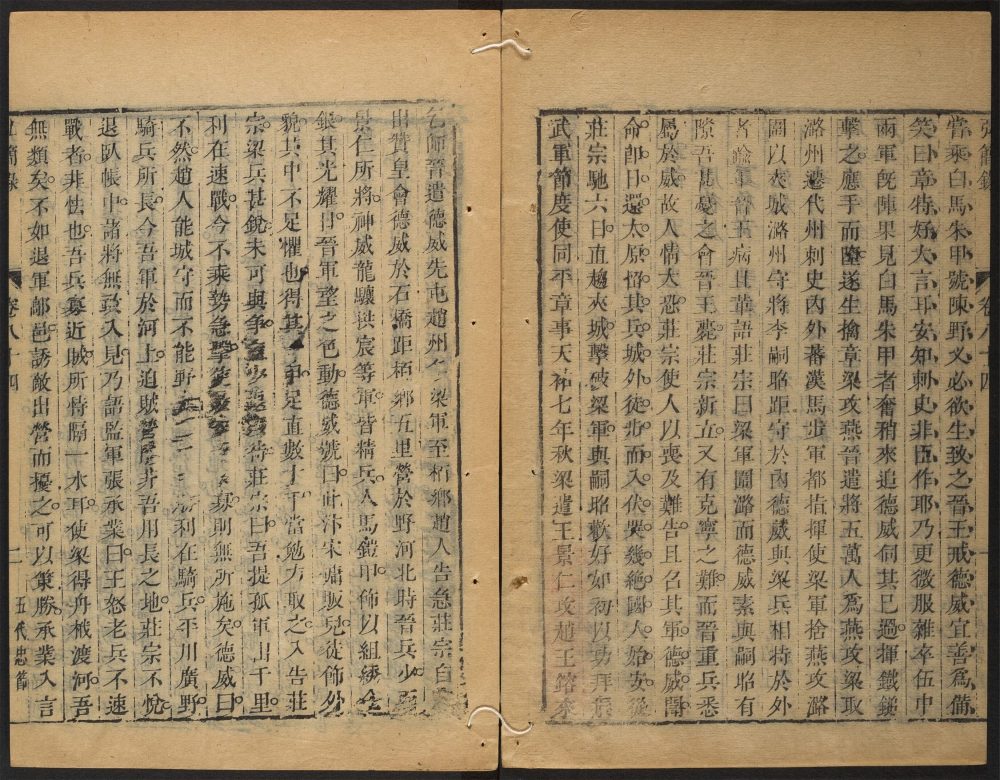 弘簡錄 卷八十四
嘗乘白馬朱甲號陳野义必欲生致之晉王戒德威宜善爲備
笑曰章特好大言耳安知刺史非臣作耶乃更微服雜卒伍中
兩軍旣陣果見白馬朱甲者奮矟來追德威伺其已過揮鐵鎚
擊之應手而墮遂生擒章梁攻燕晉遣將五萬人爲燕攻梁取
潞州遷代州刺史內外蕃漢馬步軍都指揮使梁軍捨燕攻潞
圍以夾城潞州守將李嗣昭距守於內德威與梁兵相持於外
者踰年晉王病且革語莊宗曰梁軍圍潞而德威素與嗣昭有
隙吾甚憂之會晉王薨莊宗新立又有克寧之難而晉重兵悉
屬於威故人情大恐莊宗使人以喪及難告且召其軍德威聞
命卽日還太原留其兵城外徒步而入伏哭幾絶國人始安從
莊宗馳六日直趨夾城擊破梁軍與嗣昭歡好如初以功拜振
武軍節度使同平章事天祐七年秋梁遣王景仁攻趙王鎔來
乞師晉遣德威先屯趙州 梁軍至栢鄉趙人告急莊宗自
出贊皇會德威於石橋距栢鄉五里營於野河北時晉兵少
景仁所將神威龍驤拱宸等軍皆精兵人馬鎧甲飾以組綉金
銀其光耀日晉軍望之色動德威號曰此汴宋傭販兒徒飾外
貌其中不足懼也得其 足直數十千當勉力取之入告莊
宗梁兵甚銳未可與爭 待莊宗曰吾提孤軍出千里
利在速戰今不乘勢急擊使 寡則無所施矣德威曰
不然趙人能城守而不能野 利在騎兵平川廣野
騎兵所長今吾軍於河上迫賊營 非吾用長之地莊宗不悅
退臥帳中諸將無敢入見乃語監軍張承業曰王怒老兵不速
戰者非怯也吾兵寡近賊所恃隔一水耳使梁得舟栰渡河吾
無類矣不如退軍鄗邑誘敵出營而擾之可以策勝承業入言
弘簡錄 卷八十四 五代忠節